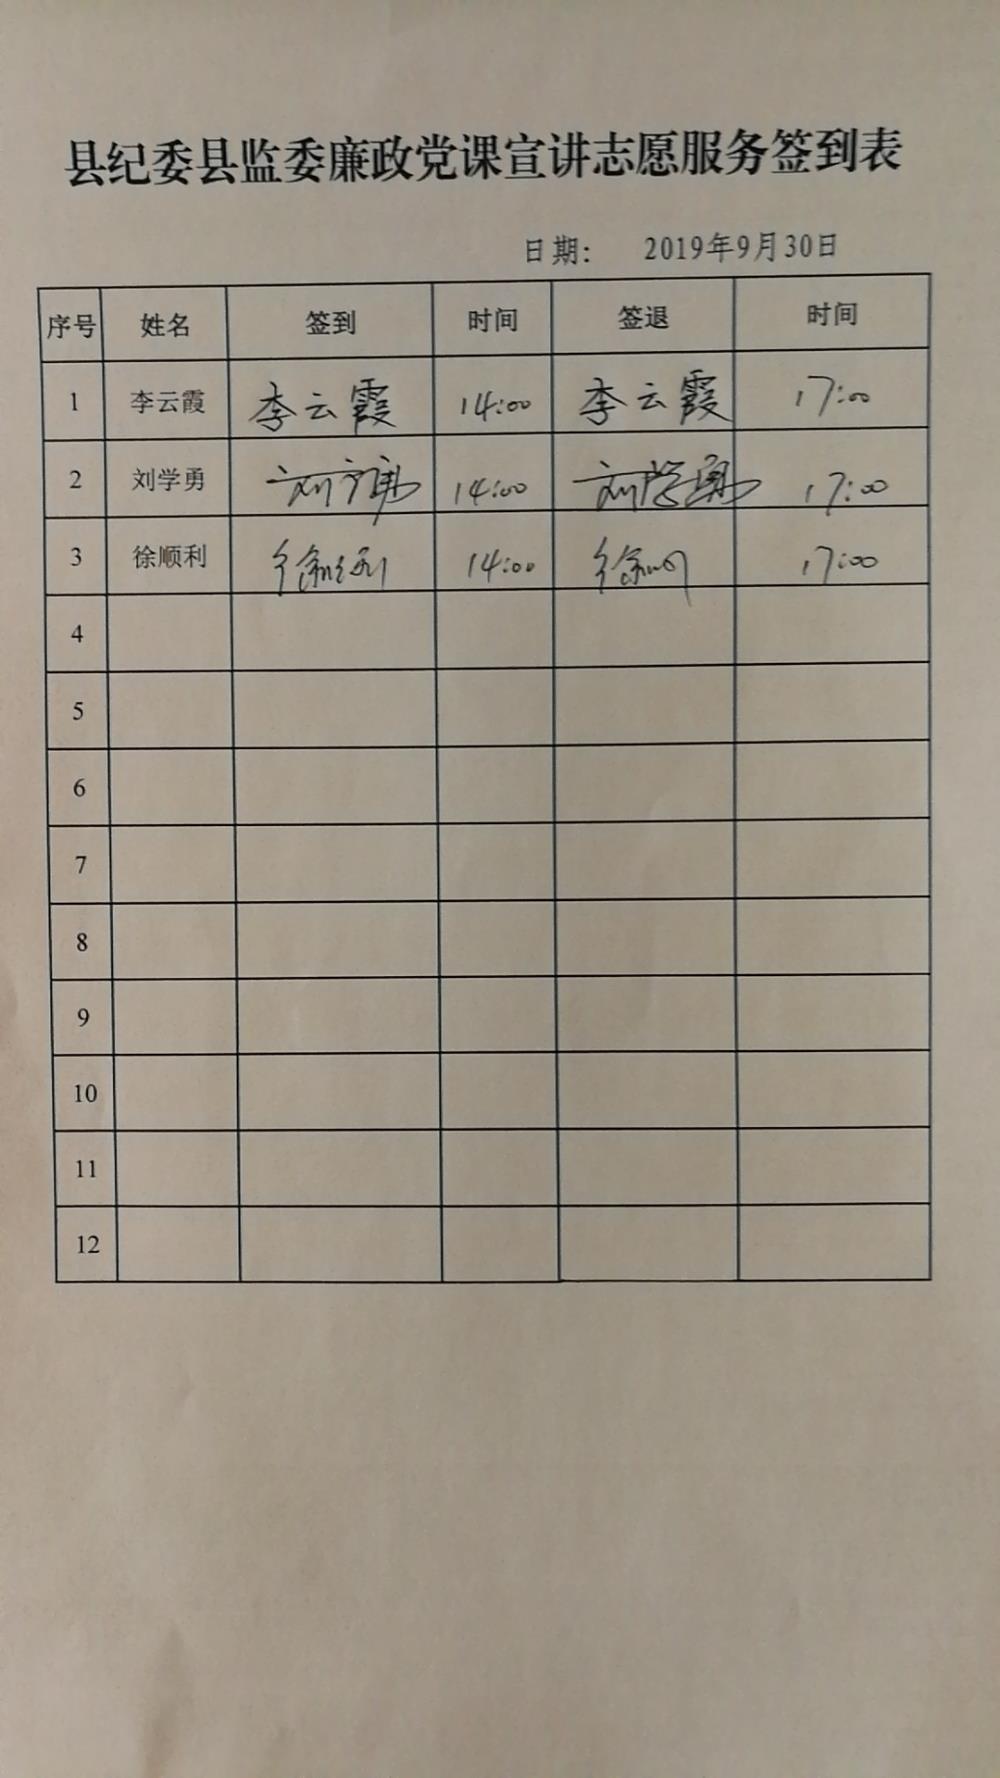 县纪委县监委廉政党课宣讲志愿服务签到表
日期： 2019年9月30日
序号 姓名 签到 时间 签退 时间
1 李云霞 李云霞 14:00 李云霞 17:00
2 刘学勇 刘学勇 14:00 刘学勇 17:00
3 徐顺利 徐顺利 14:00 徐顺利 17:00
4
5
6
7
8
9
10
11
12